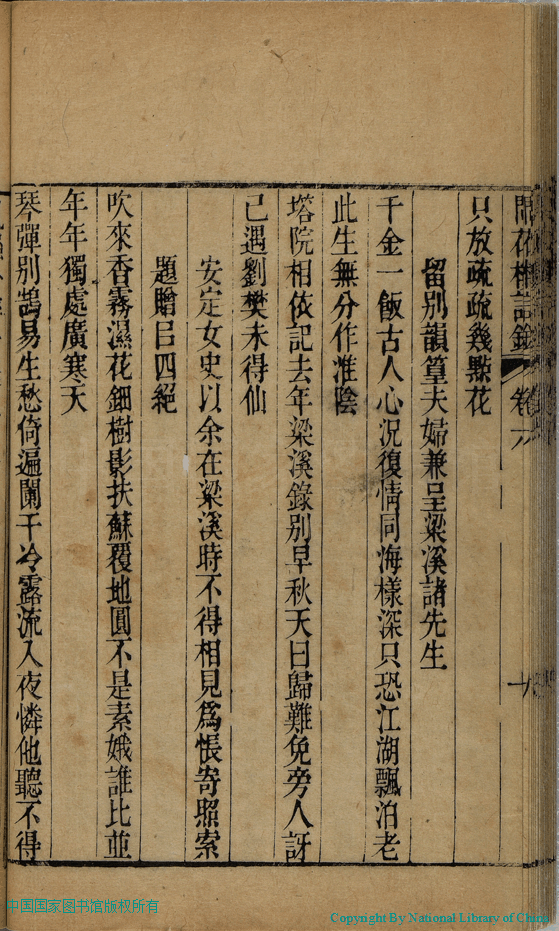 閒花樹詩鈔 卷六 十
只放疏疏幾點花
留別韻篁夫婦兼呈梁溪諸先生
千金一飯古人心況復情同海樣深只恐江湖飄泊老
此生無分作淮陰
塔院相依記去年梁溪錄別早秋天日歸難免旁人訝
已遇劉樊未得仙
安定女史以余在梁溪時不得相見爲悵寄照索
題贈呂四絕
吹來香霧濕花鈿樹影扶蘇覆地圓不是素娥誰比並
年年獨處廣寒天
琴彈別鵠易生愁倚遍闌干冷露流入夜憐他聽不得
中国国家图书馆版权所有
Copyright By National Library of China